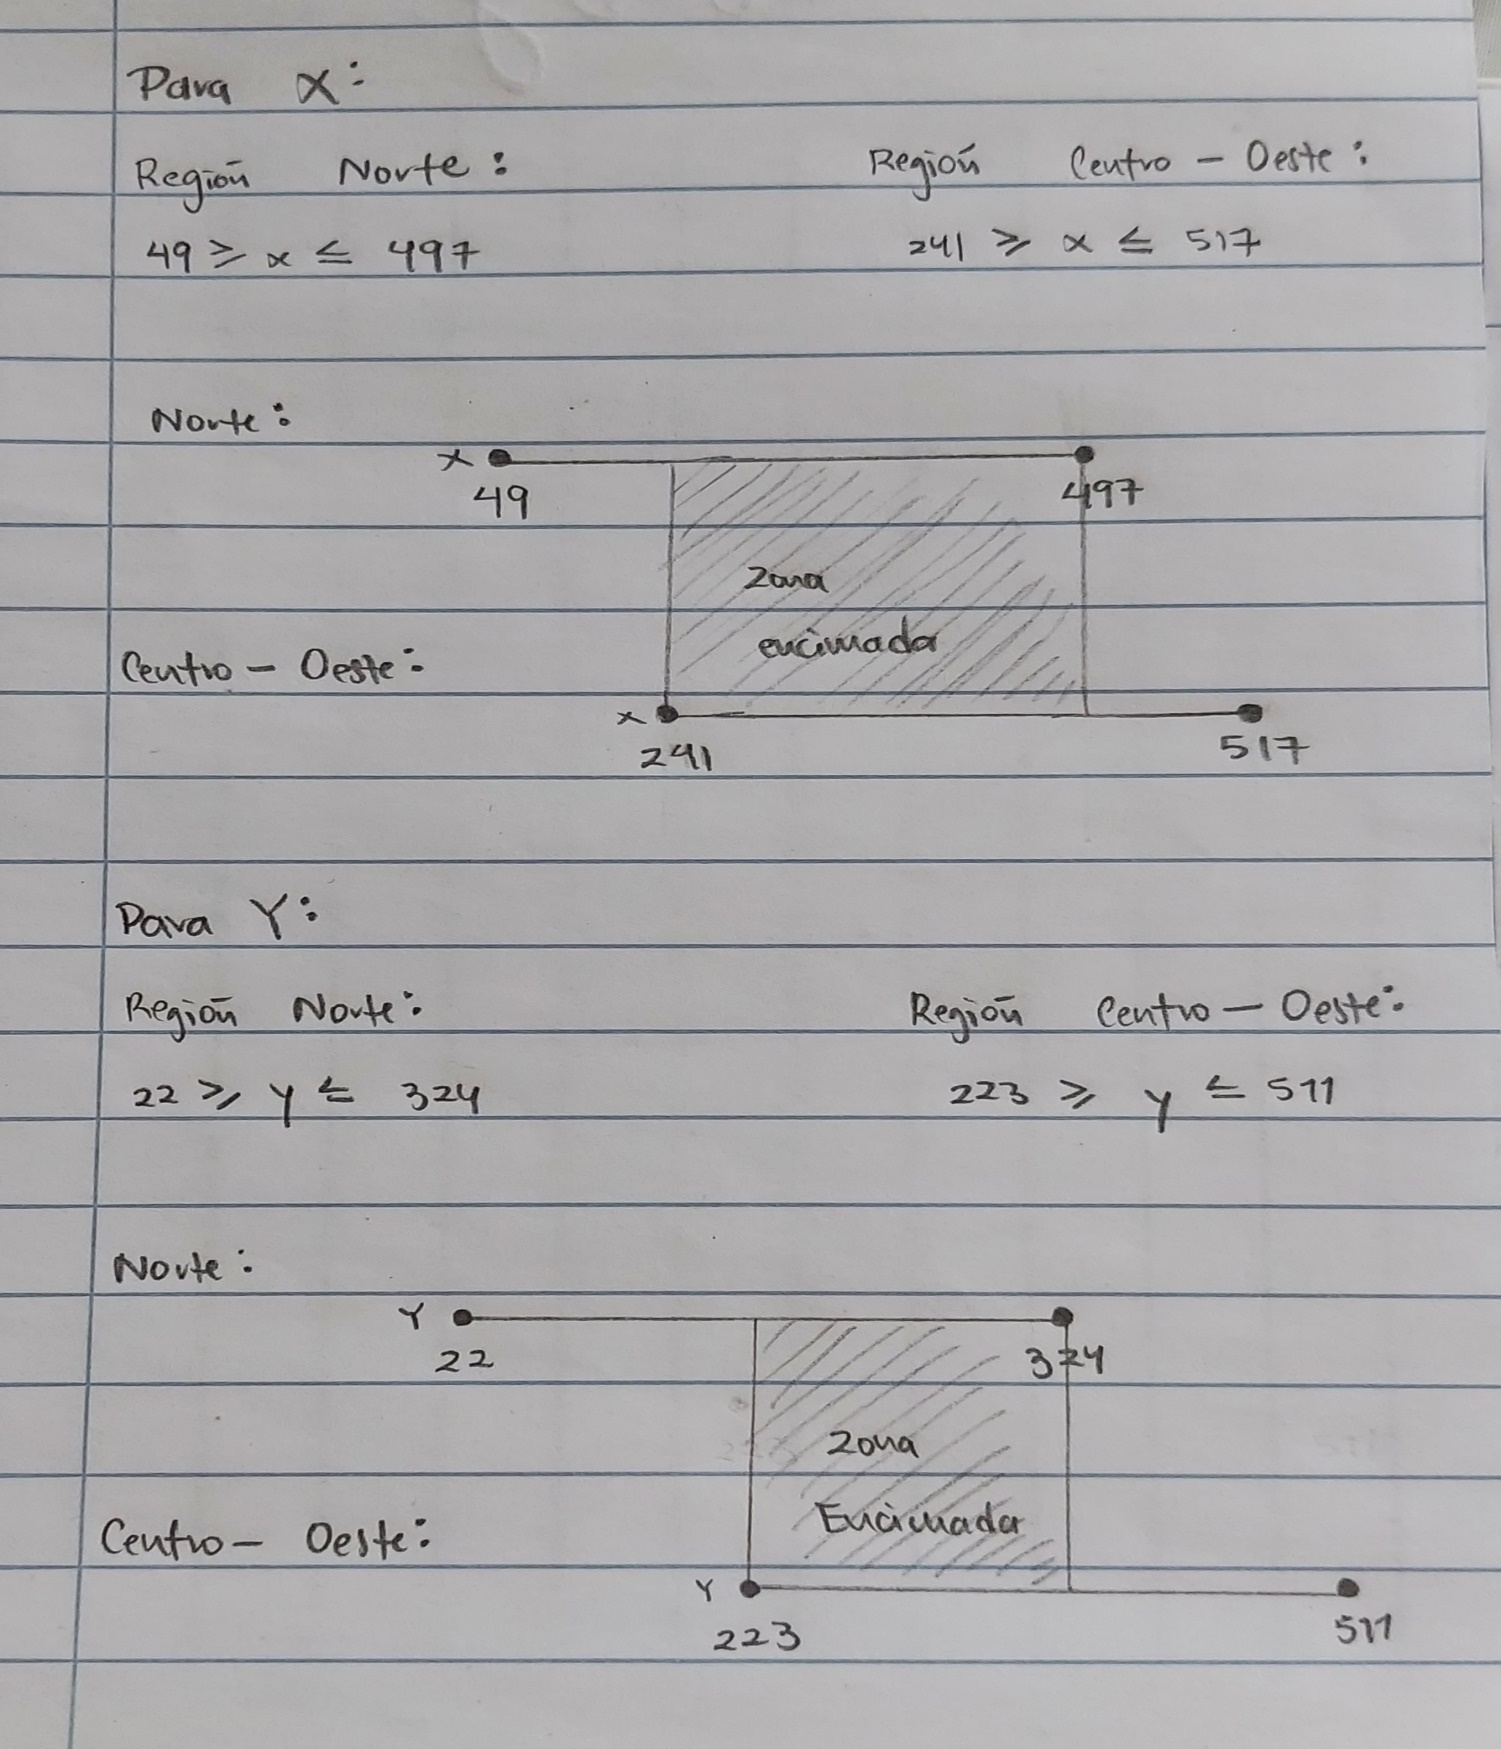 Para x:
Región Norte: Región Centro - Oeste:
49 ≥ x ≤ 497 241 ≥ x ≤ 517
Norte:
x
49 497
Zona
encimada
Centro - Oeste:
x
241 517
Para Y:
Región Norte: Región Centro - Oeste:
22 ≥ y ≤ 324 223 ≥ y ≤ 511
Norte:
Y
22 324
Zona
Encimada
Centro - Oeste:
Y
223 511